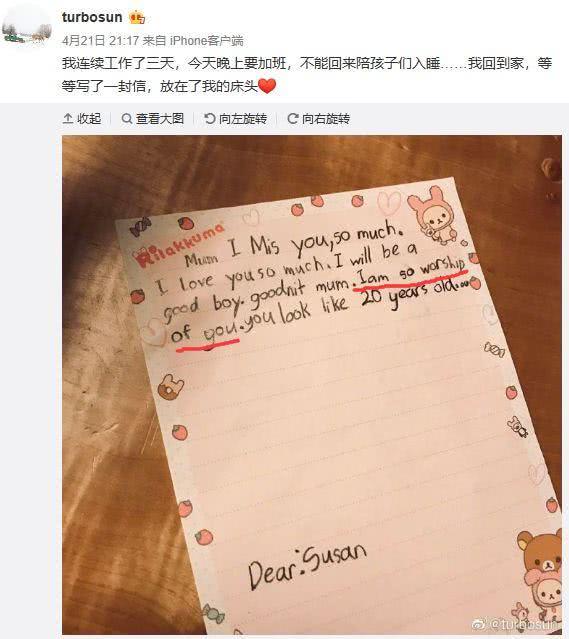 turbosun
4月21日 21:17 来自 iPhone客户端
我连续工作了三天，今天晚上要加班，不能回来陪孩子们入睡……我回到家，等
等写了一封信，放在了我的床头❤️
收起 查看大图 向左旋转 向右旋转
Rilakkuma
Mum I Mis you,so much.
I love you so much.I will be a
good boy.goodnit mum.Iam so worship
of you.you look like 20 years old...
Dear:Susan
@turbosun